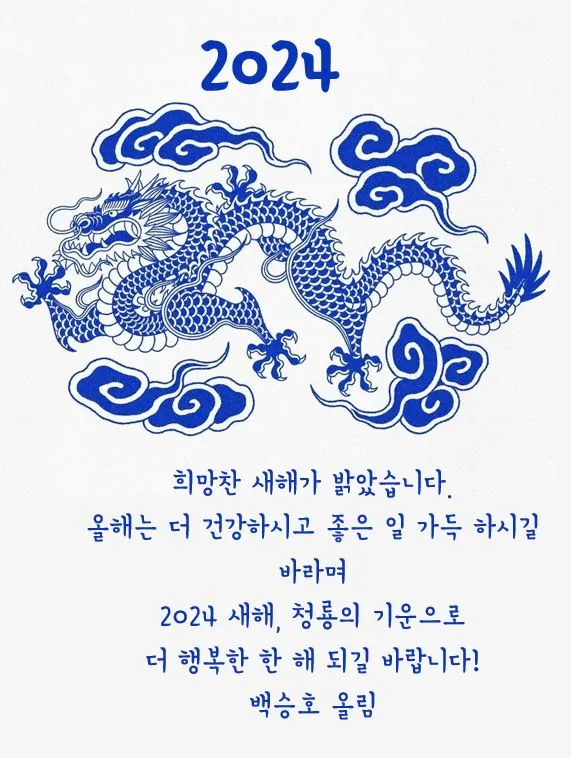 2024
희망찬 새해가 밝았습니다.
올해는 더 건강하시고 좋은 일 가득 하시길
바라며
2024 새해, 청룡의 기운으로
더 행복한 한 해 되길 바랍니다!
백승호 올림